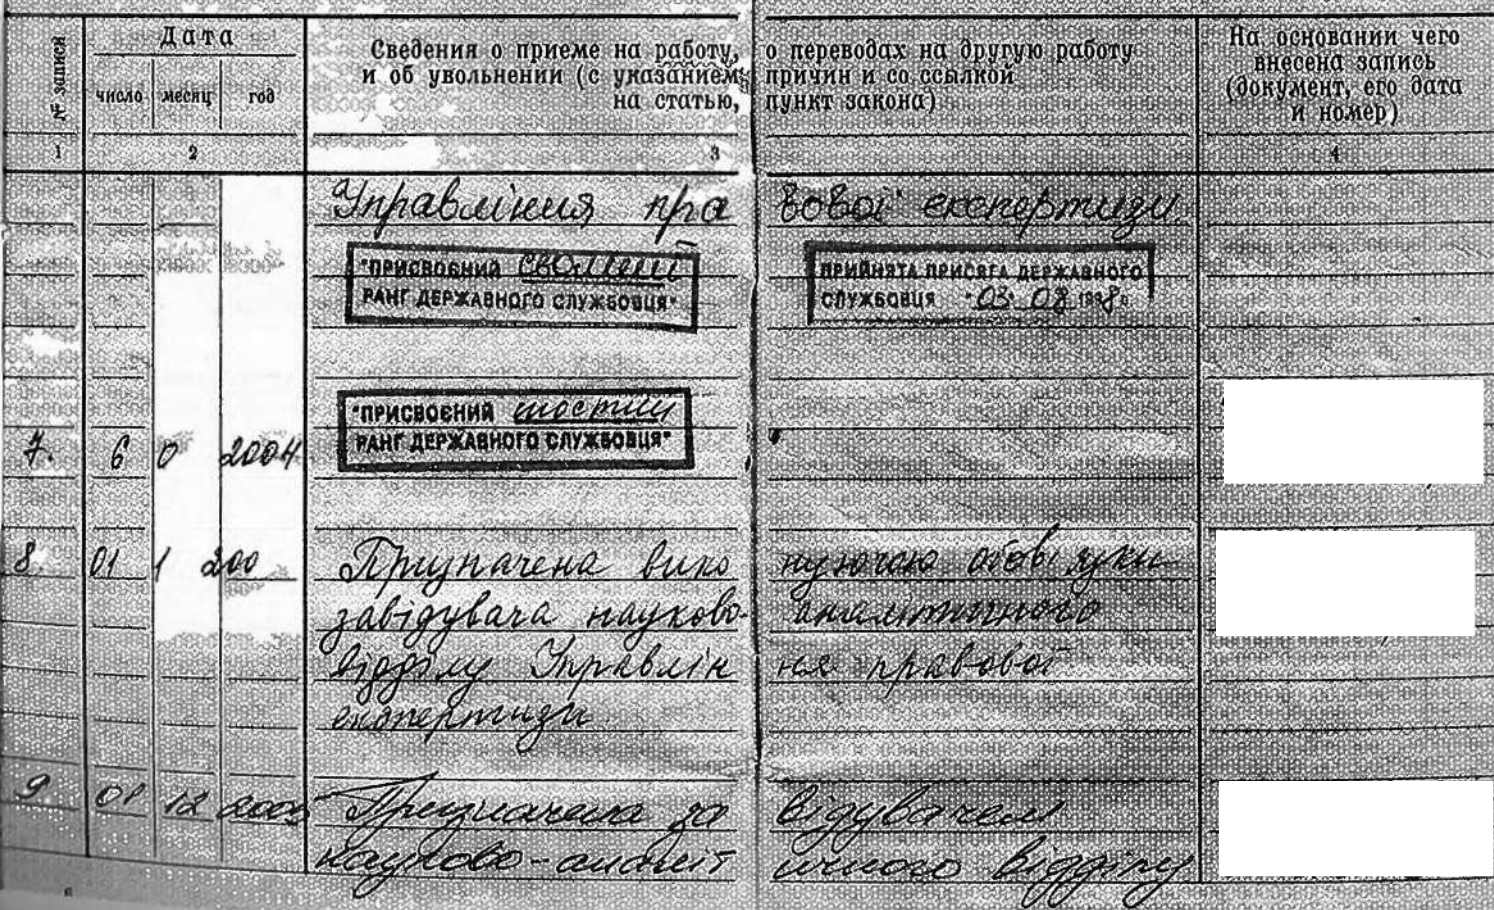 № записи
Дата
число месяц год
Сведения о приеме на работу, о переводах на другую работу
и об увольнении (с указанием причин и со ссылкой
на статью, пункт закона)
На основании чего
внесена запись
(документ, его дата
и номер)
1 2 3 4
Управління правової експертизи
"ПРИСВОЄНИЙ сьомий
РАНГ ДЕРЖАВНОГО СЛУЖБОВЦЯ"
ПРИЙНЯТА ПРИСЯГА ДЕРЖАВНОГО
СЛУЖБОВЦЯ "03" 08 1998р.
"ПРИСВОЄНИЙ шостий
РАНГ ДЕРЖАВНОГО СЛУЖБОВЦЯ"
7. 6 0 2004
8. 01 1 200 Призначена виконуючою обов'язки
завідувача науково-аналітичного
відділу Управління правової
експертизи
9 01 12 2005 Призначена завідувачем
науково-аналітичного відділу
6